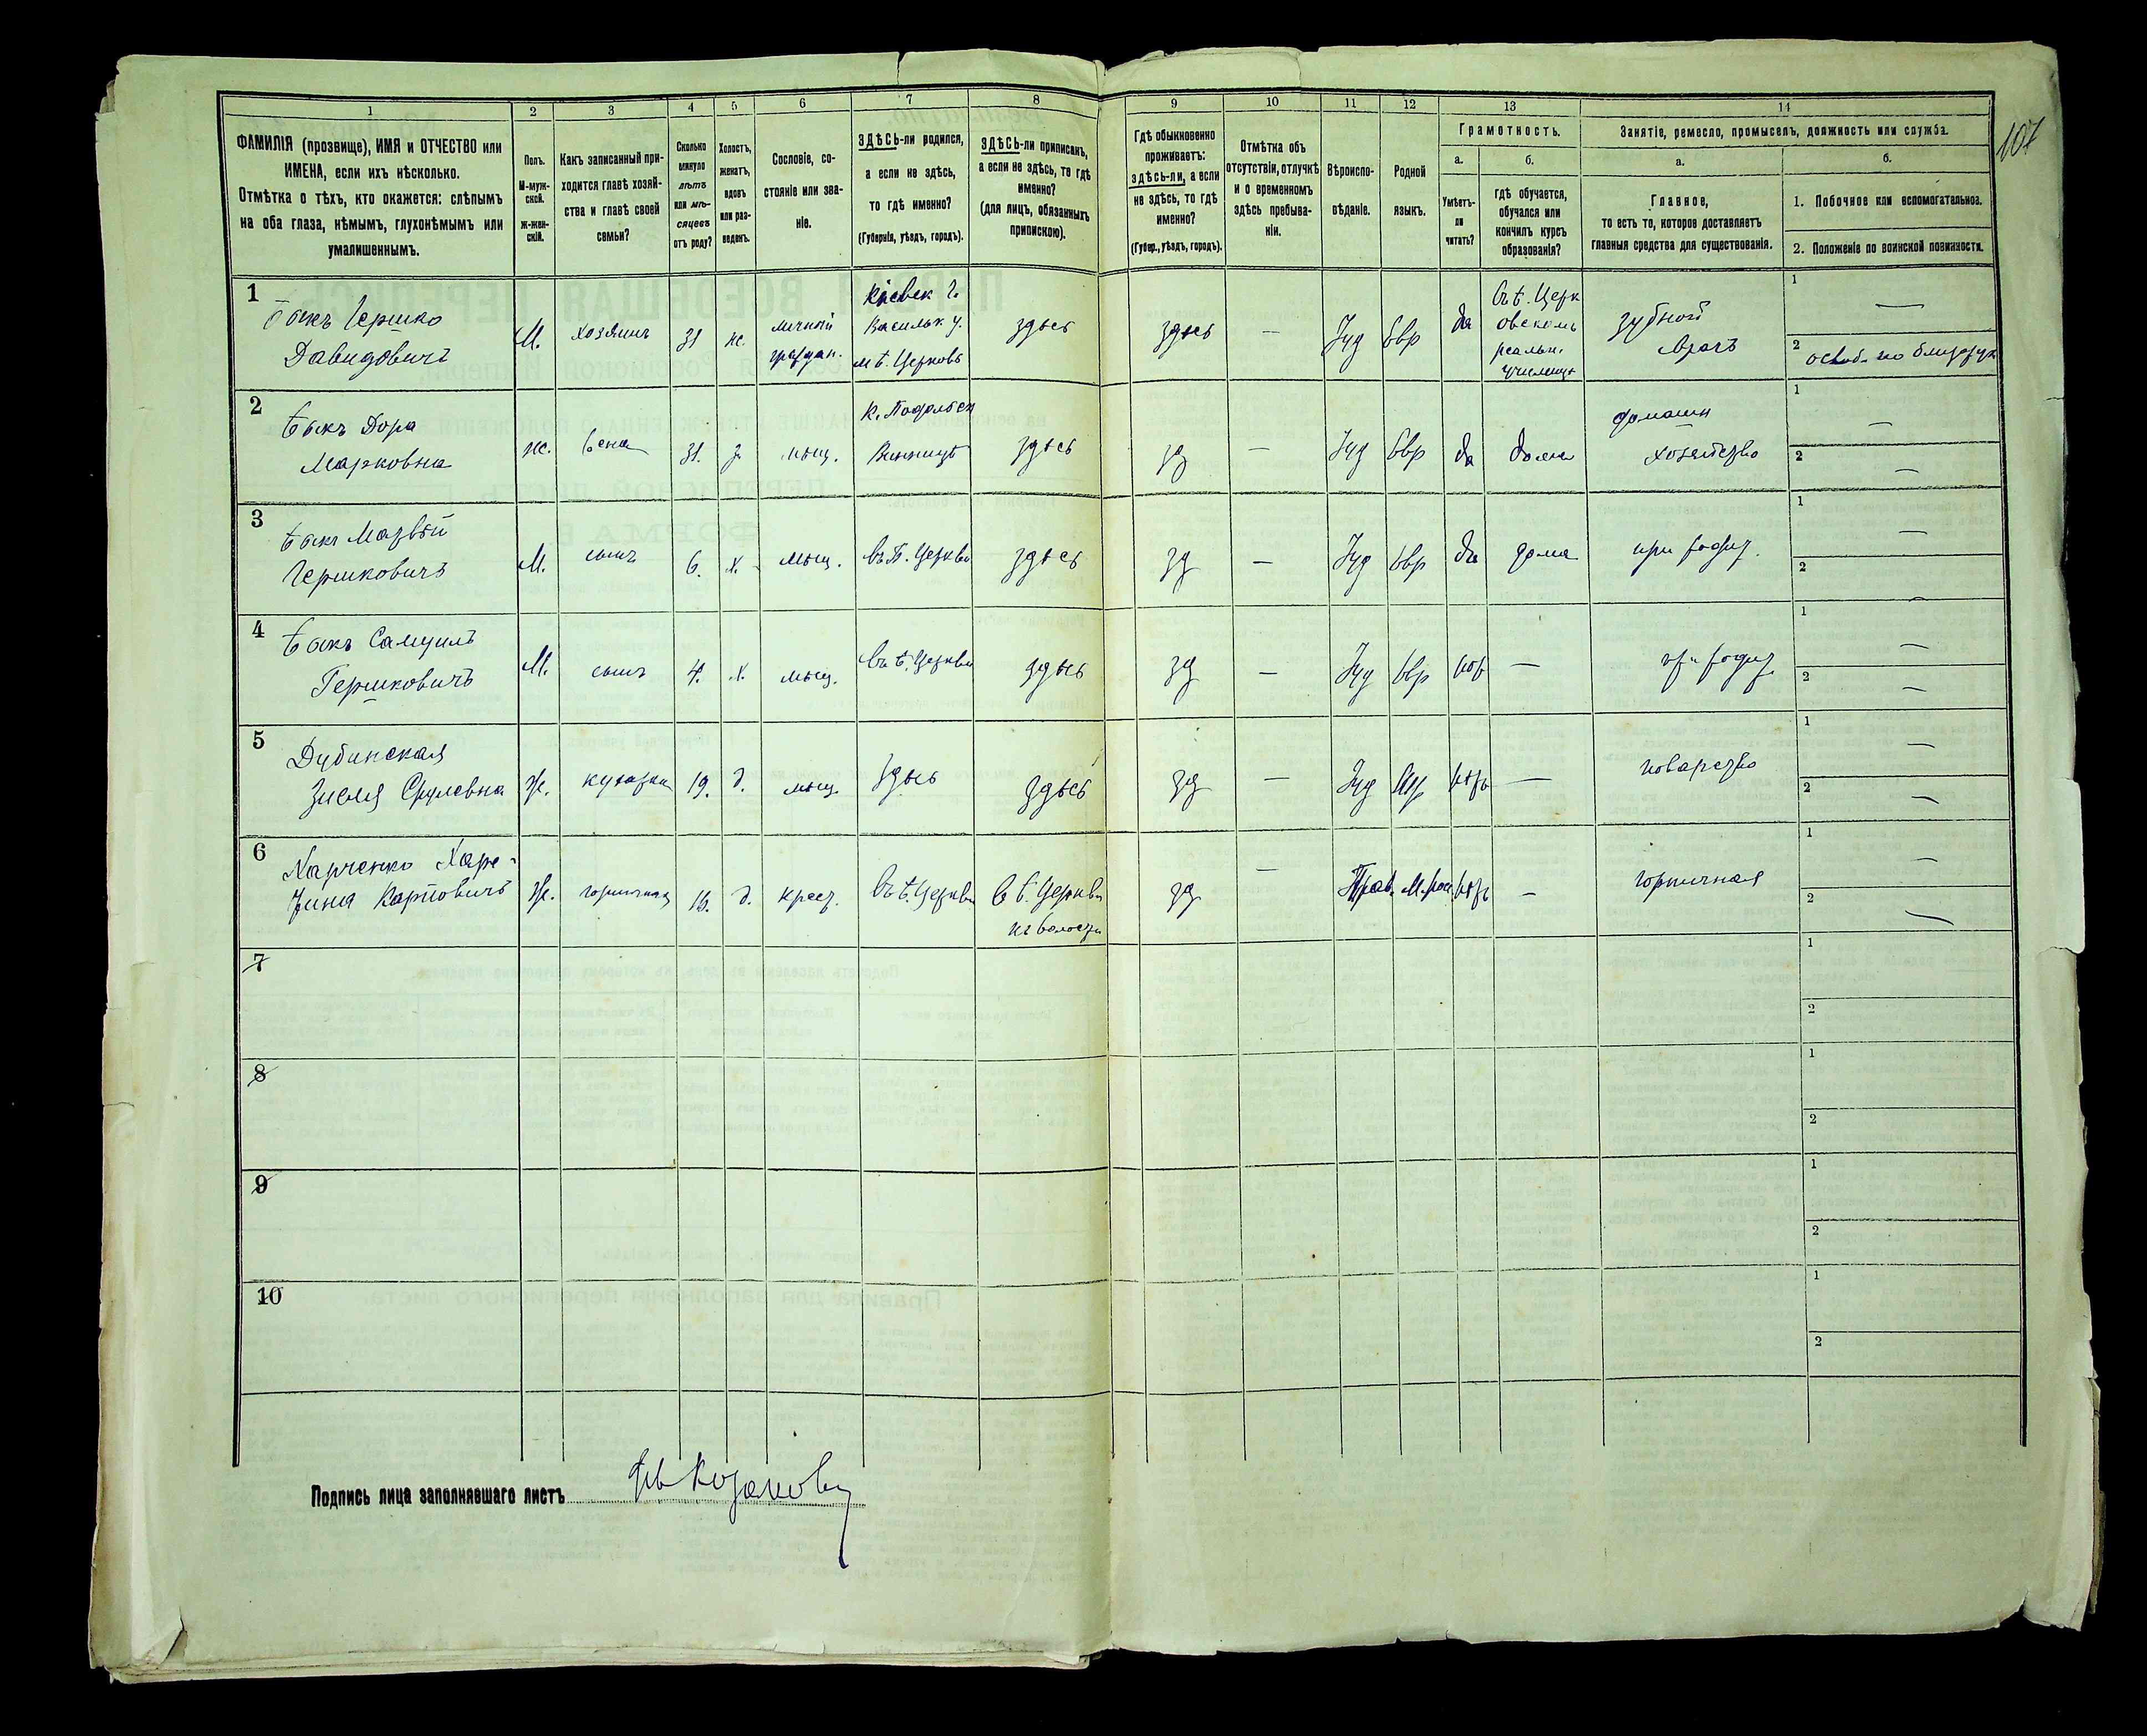 107
1
2
3
4
5
6
7
8
9
10
11
12
13
14
ФАМИЛІЯ (прозвище), ИМЯ и ОТЧЕСТВО или
ИМЕНА, если ихъ нѣсколько.
Отмѣтка о тѣхъ, кто окажется: слѣпымъ
на оба глаза, нѣмымъ, глухонѣмымъ или
умалишеннымъ.
Полъ.
М-муж-
ской.
ж-жен-
скій.
Какъ записанный при-
ходится главѣ хозяй-
ства и главѣ своей
семьи?
Сколько
минуло
лѣтъ
или мѣ-
сяцевъ
отъ роду?
Холостъ,
женатъ,
вдовъ
или раз-
веденъ.
Сословіе, со-
стояніе или зва-
ніе.
ЗДѢСЬ-ли родился,
а если не здѣсь,
то гдѣ именно?
(Губернія, уѣздъ, городъ).
ЗДѢСЬ-ли приписанъ,
а если не здѣсь, то гдѣ
именно?
(для лицъ, обязанныхъ
припискою).
Гдѣ обыкновенно
проживаетъ:
здѣсь-ли, а если
не здѣсь, то гдѣ
именно?
(Губер., уѣздъ, городъ).
Отмѣтка объ
отсутствіи, отлучкѣ
и о временномъ
здѣсь пребыва-
ніи.
Вѣроиспо-
вѣданіе.
Родной
языкъ.
Грамотность.
а.
Умѣетъ-
ли
читать?
б.
гдѣ обучается,
обучался или
кончилъ курсъ
образованія?
Занятіе, ремесло, промыселъ, должность или служба.
а.
Главное,
то есть то, которое доставляетъ
главныя средства для существованія.
б.
1. Побочное или вспомогательное.
2. Положеніе по воинской повинности.
1
Быкъ Гершко
Давидовичъ
М.
хозяинъ
31
ж.
личный
граждан.
Кіевск г.
Васильк у.
м Б. Церковь
здѣсь
здѣсь
—
Іуд
Евр
да
въ Б. Церк
овскомъ
реальн.
училищѣ
зубной
врачъ
1
—
2
освоб. по близорук
2
Быкъ Дора
Марковна
ж.
жена
31.
з.
мѣщ.
К. Подольск
Винницѣ
здѣсь
зд
—
Іуд
Евр
да
дома
домашн
хозяйство
1
—
2
—
3
Быкъ Матвѣй
Гершковичъ
М.
сынъ
6.
х.
мѣщ.
въ Б. Церкви
здѣсь
зд
—
Іуд
Евр
да
дома
при родит.
1
—
2
—
4
Быкъ Самуилъ
Гершковичъ
М.
сынъ
4.
х.
мѣщ.
въ Б. Церкви
здѣсь
зд
—
Іуд
Евр
—
при родит.
1
—
2
—
5
Дубинская
Зисля Срулевна
Ж.
кухарка
19.
д.
мѣщ.
здѣсь
здѣсь
зд
—
Іуд
Евр
—
поварство
1
—
2
—
6
Харченко Хари-
тина Карповичъ
Ж.
горничная
16.
д.
крест.
въ Б. Церкви
В Б. Церкви
к. волости
зд
—
Прав.
М.рос.
—
горничная
1
—
2
—
7
1
2
8
1
2
9
1
2
10
1
2
Подпись лица заполнявшаго листъ